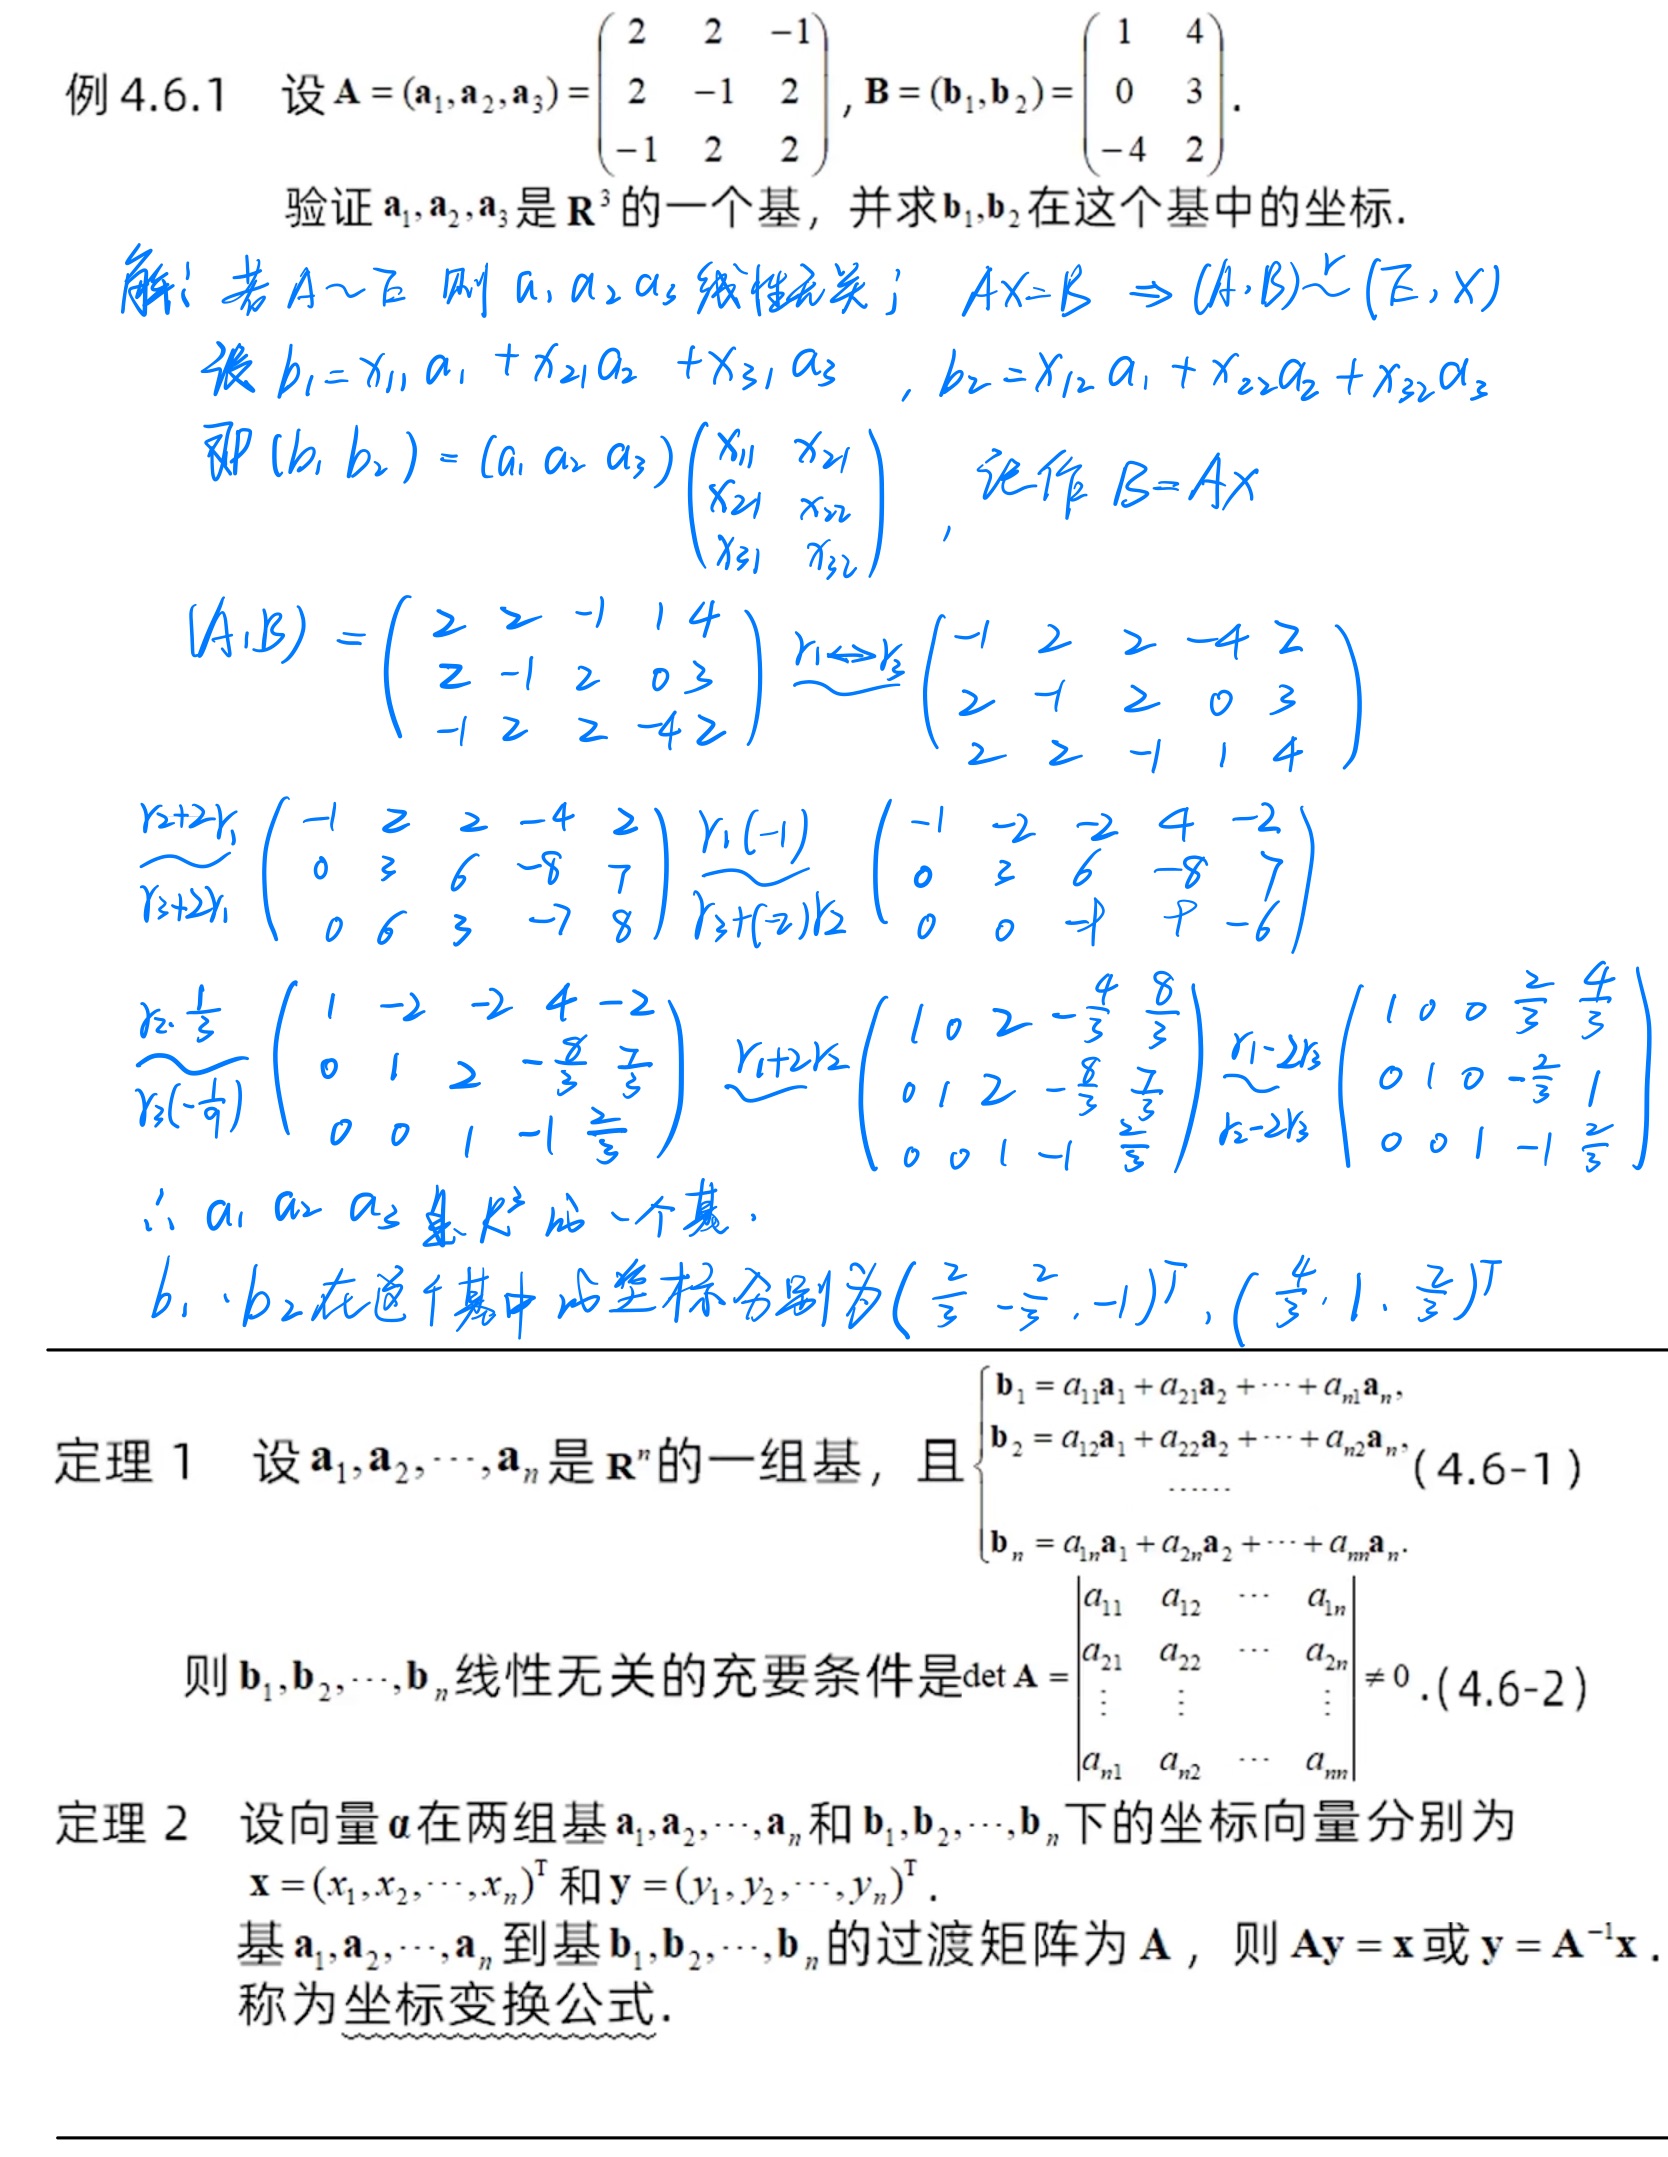 例 4.6.1 设 A = (a₁,a₂,a₃) = ( 2 2 −1 ; 2 −1 2 ; −1 2 2 ) , B = (b₁,b₂) = ( 1 4 ; 0 3 ; −4 2 ) .
验证 a₁,a₂,a₃ 是 R³ 的一个基，并求 b₁,b₂ 在这个基中的坐标.
解: 若 A~E 则 a₁ a₂ a₃ 线性无关; AX=B ⇒ (A,B) ~r (E,X)
设 b₁=x₁₁a₁+x₂₁a₂+x₃₁a₃ , b₂=x₁₂a₁+x₂₂a₂+x₃₂a₃
即 (b₁ b₂) = (a₁ a₂ a₃) ( x₁₁ x₂₁ ; x₂₁ x₂₂ ; x₃₁ x₃₂ ) , 记作 B=AX
(A,B) = ( 2 2 -1 1 4 ; 2 -1 2 0 3 ; -1 2 2 -4 2 ) r₁↔r₃ ~ ( -1 2 2 -4 2 ; 2 -1 2 0 3 ; 2 2 -1 1 4 )
r₂+2r₁ ~ r₃+2r₁ ( -1 2 2 -4 2 ; 0 3 6 -8 7 ; 0 6 3 -7 8 ) r₁(-1) ~ r₃+(-2)r₂ ( -1 -2 -2 4 -2 ; 0 3 6 -8 7 ; 0 0 -9 9 -6 )
r₂·1/3 ~ r₃(-1/9) ( 1 -2 -2 4 -2 ; 0 1 2 -8/3 7/3 ; 0 0 1 -1 2/3 ) r₁+2r₂ ~ ( 1 0 2 -4/3 8/3 ; 0 1 2 -8/3 7/3 ; 0 0 1 -1 2/3 ) r₁-2r₃ ~ r₂-2r₃ ( 1 0 0 2/3 4/3 ; 0 1 0 -2/3 1 ; 0 0 1 -1 2/3 )
∴ a₁ a₂ a₃ 是 R³ 的一个基.
b₁、b₂在这个基中的坐标分别为 (2/3 -2/3, -1)ᵀ, (4/3, 1, 2/3)ᵀ
定理 1 设 a₁,a₂,⋯,aₙ 是 Rⁿ 的一组基，且 { b₁ = a₁₁a₁ + a₂₁a₂ + ⋯ + aₙ₁aₙ,
b₂ = a₁₂a₁ + a₂₂a₂ + ⋯ + aₙ₂aₙ, (4.6-1)
······
bₙ = a₁ₙa₁ + a₂ₙa₂ + ⋯ + aₙₙaₙ.
则 b₁,b₂,⋯,bₙ 线性无关的充要条件是 det A = | a₁₁ a₁₂ ⋯ a₁ₙ ; a₂₁ a₂₂ ⋯ a₂ₙ ; ⋮ ⋮ ⋮ ; aₙ₁ aₙ₂ ⋯ aₙₙ | ≠ 0 .(4.6-2)
定理 2 设向量 α 在两组基 a₁,a₂,⋯,aₙ 和 b₁,b₂,⋯,bₙ 下的坐标向量分别为
x = (x₁,x₂,⋯,xₙ)ᵀ 和 y = (y₁,y₂,⋯,yₙ)ᵀ .
基 a₁,a₂,⋯,aₙ 到基 b₁,b₂,⋯,bₙ 的过渡矩阵为 A ，则 Ay = x 或 y = A⁻¹x .
称为坐标变换公式.